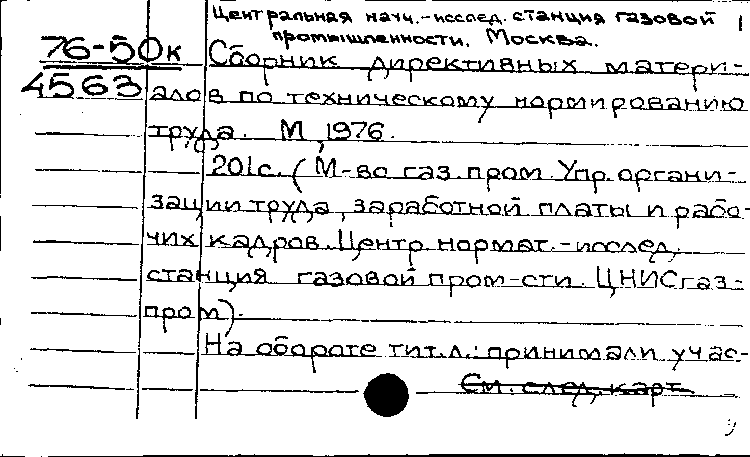 Центральная науч.-исслед. станция газовой 1
промышленности. Москва.
76-50к Сборник директивных матери-
4563 алов по техническому нормированию
труда. М, 1976.
201с. (М-во газ. пром. Упр. органи-
зации труда, заработной платы и рабо-
чих кадров. Центр. нормат.-исслед.
станция газовой пром-сти. ЦНИСгаз-
пром).
На обороте тит.л.: принимали учас-
См. след. карт.